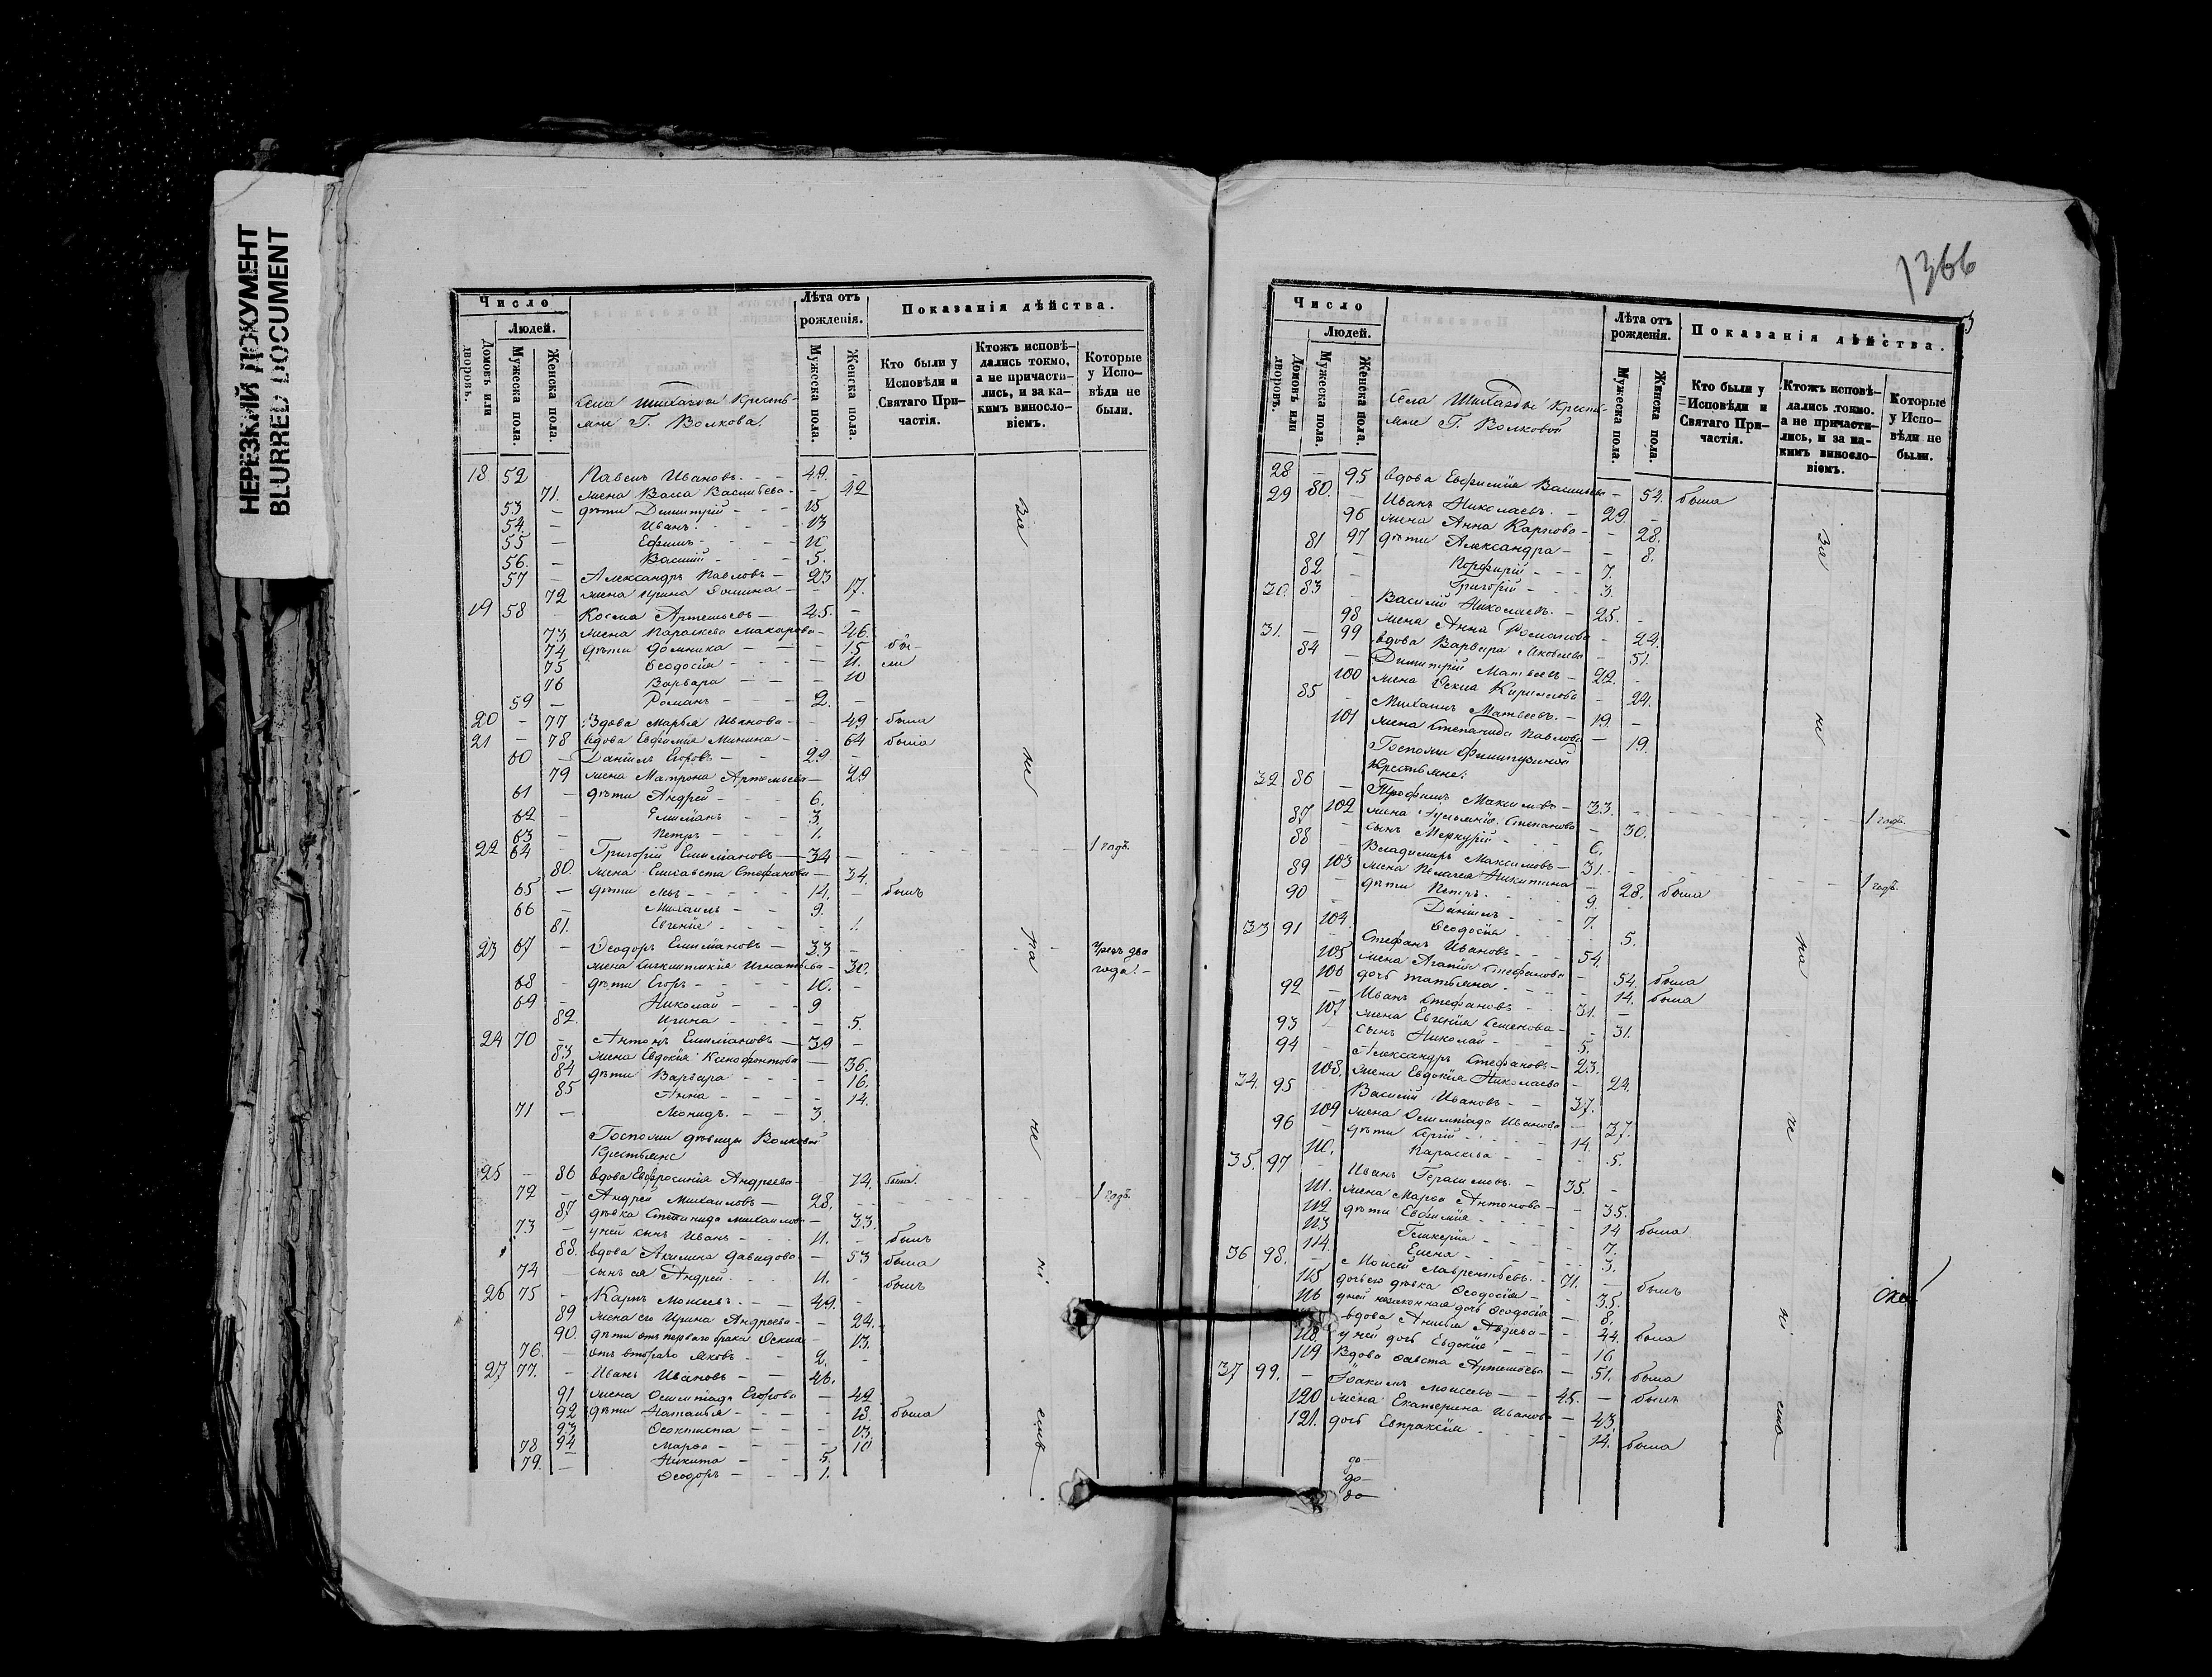 НЕРЕЗКИЙ ДОКУМЕНТ
BLURRED DOCUMENT
Число
Людей.
Домовъ или дворовъ.
Мужеска пола.
Женска пола.
Лѣта отъ рожденія.
Мужеска пола.
Женска пола.
Показанія дѣйства.
Кто были у Исповѣди и Святаго Причастія.
Ктожъ исповѣдались токмо, а не причастились, и за какимъ винословіемъ.
Которые у Исповѣди не были.
Села Крестьяне Г. Волкова.
18 52 Павелъ Ивановъ 49.
71. жена Васса Васильева 42
53 дѣти Димитрій 15
54. Иванъ 13
55 Ефимъ 10
56. Василій 5.
57 Александръ Павловъ 23
72 жена Ирина 17.
19 58 Косма Артемьевъ 45.
73 жена Параскева Макарова 46.
74 дѣти Домника 15 бы-
75 Ѳеодосія 11. ли
76 Варвара 10
59 Романъ 2.
20 77 Вдова Марѳа Иванова 49 была
21 78 вдова Евфимія Минина 64 была
60 Даніилъ Егоровъ 29
79 жена Матрона Артемьева 29
61 дѣти Андрей 6.
62 Емиліанъ 3.
63 Петръ 1.
22 64 Григорій Емиліановъ 34 1 годъ.
80. жена Елисавета Стефанова 34.
65 дѣти 14. былъ
66 Михаилъ 9.
81. Евгенія 1.
23 67 Ѳеодоръ Емиліановъ 33 Чрезъ два
жена Игнатьева 30. года.
68 дѣти Егоръ 10.
69 Николай 9
82. Ирина 5.
24 70 Антонъ Емиліановъ 39
83. жена Евдокія Ксенофонтова 36.
84 дѣти Варвара 16.
85 Анна 14.
71 Леонидъ 3.
Госпожи дѣвицы Волковой
Крестьяне
25 86 вдова Евфросинія Андреева 72. была.
72 Андрей Михаиловъ 28. 1 годъ.
87 дѣвка Степанида Михаилова 33.
73 у ней сынъ Иванъ 11. былъ
88. вдова Акилина Давидова 53 была
74 сынъ ея Андрей 11. былъ
26 75 Карпъ Моисеевъ 49.
89 жена его Ирина Андреева 24.
90. дѣти отъ перваго брака Ѳекла 13.
76. отъ втораго Яковъ 2.
27 77. Иванъ Ивановъ 46.
91 жена Олимпіада Егорова 42
92 дѣти Наталья 18. была
93 Ѳеоктиста 13.
94 Марѳа 10
78 Никита 5.
79. Ѳеодоръ 1.
1366
Число
Людей.
Домовъ или дворовъ.
Мужеска пола.
Женска пола.
Лѣта отъ рожденія.
Мужеска пола.
Женска пола.
Показанія дѣйства.
Кто были у Исповѣди и Святаго Причастія.
Ктожъ исповѣдались токмо, а не причастились, и за какимъ винословіемъ.
Которые у Исповѣди не были.
Села Крестьяне Г. Волковой
28 95 вдова Евфимія Васильева 54. была
29 80. Иванъ Николаевъ 29.
96 жена Анна Карпова 28.
97 дѣти Александра 8.
81 Порфирій 7.
82 Григорій 3.
30. 83 Василій Николаевъ 25.
98 жена Анна Романова 22.
31. 99 вдова Варвара Яковлева 51.
84 Димитрій Матвеевъ 22.
100 жена Ѳекла Кирилова 24.
85 Михаилъ Матвеевъ 19.
101 жена Степанида Павлова 19.
Госпожи
Крестьяне:
32 86 Трофимъ Максимовъ 33. 1 годъ.
102 жена Степанова 30.
87 сынъ Меркурій 6.
88 Владиміръ Максимовъ 31. 1 годъ.
103 жена Пелагея Никитина 28. была
89 дѣти Петръ 9.
90 Даніилъ 7.
104. Ѳеодосія 5.
33 91 Стефанъ Ивановъ 54.
105 жена Агапія Стефанова 54. была
106 дочь Татьяна 14. была
92 Иванъ Стефановъ 31.
107 жена Евгенія Семенова 31.
93 сынъ Николай 5.
94 Александръ Стефановъ 23.
108. жена Евдокія Николаева 22.
34. 95 Василій Ивановъ 37.
109 жена Олимпіада Иванова 37.
96 дѣти Сергій 14.
110. Параскева 5.
35. 97 Иванъ Герасимовъ 35.
111. жена Марѳа Антонова 35.
112 дѣти Евфимія 14 была
113 Гликерія 7.
114. Елена 3.
36 98. Моисей Лаврентьевъ 71. былъ
115 дочь его дѣвка Ѳеодосія 35.
116 у ней незаконная дочь Ѳеодосія 8.
вдова Авдеева 44. была
118. у ней дочь Евдокія 16
119 Вдова Артемьева 51. была
37 99. Іоакимъ Моисеевъ 45. былъ
120 жена Екатерина Иванова 43.
121. дочь Евпраксія 14. была
до
до
до